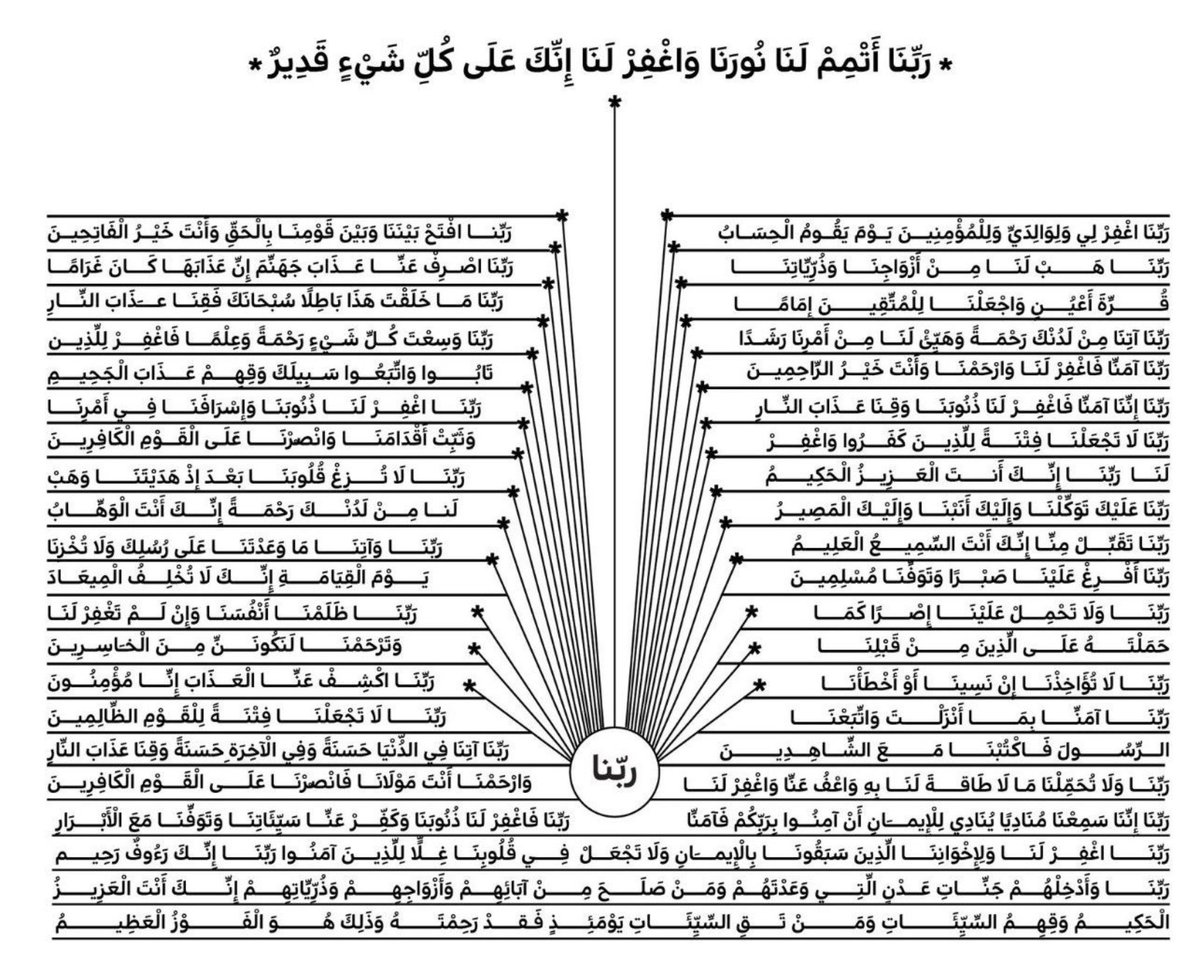 * رَبِّنَا أَتْمِمْ لَنَا نُورَنَا وَاغْفِرْ لَنَا إِنِّكَ عَلَى كُلِّ شَيْءٍ قَدِيرٌ *
رَبِّنَا اغْفِرْ لِي وَلِوَالِدَيِّ وَلِلْمُؤْمِنِينَ يَوْمَ يَقُومُ الْحِسَابُ
رَبِّنَا هَبْ لَنَا مِنْ أَزْوَاجِنَا وَذُرِّيِّاتِنَا
قُرِّةَ أَعْيُنٍ وَاجْعَلْنَا لِلْمُتِّقِينَ إِمَامًا
رَبِّنَا آتِنَا مِنْ لَدُنْكَ رَحْمَةً وَهَيِّئْ لَنَا مِنْ أَمْرِنَا رَشَدًا
رَبِّنَا آمَنِّا فَاغْفِرْ لَنَا وَارْحَمْنَا وَأَنْتَ خَيْرُ الرِّاحِمِينَ
رَبِّنَا إِنِّنَا آمَنِّا فَاغْفِرْ لَنَا ذُنُوبَنَا وَقِنَا عَذَابَ النِّارِ
رَبِّنَا لَا تَجْعَلْنَا فِتْنَةً لِلِّذِينَ كَفَرُوا وَاغْفِرْ
لَنَا رَبِّنَا إِنِّكَ أَنتَ الْعَزِيزُ الْحَكِيمُ
رَبِّنَا عَلَيْكَ تَوَكِّلْنَا وَإِلَيْكَ أَنَبْنَا وَإِلَيْكَ الْمَصِيرُ
رَبِّنَا تَقَبِّلْ مِنِّا إِنِّكَ أَنْتَ السِّمِيعُ الْعَلِيمُ
رَبِّنَا أَفْرِغْ عَلَيْنَا صَبْرًا وَتَوَفِّنَا مُسْلِمِينَ
رَبِّنَا وَلَا تَحْمِلْ عَلَيْنَا إِصْرًا كَمَا
حَمَلْتَهُ عَلَى الِّذِينَ مِنْ قَبْلِنَا
رَبِّنَا لَا تُؤَاخِذْنَا إِنْ نَسِينَا أَوْ أَخْطَأْنَا
رَبِّنَا آمَنِّا بِمَا أَنْزَلْتَ وَاتِّبَعْنَا
الرِّسُولَ فَاكْتُبْنَا مَعَ الشِّاهِدِينَ
رَبِّنَا وَلَا تُحَمِّلْنَا مَا لَا طَاقَةَ لَنَا بِهِ وَاعْفُ عَنِّا وَاغْفِرْ لَنَا
رَبِّنَا افْتَحْ بَيْنَنَا وَبَيْنَ قَوْمِنَا بِالْحَقِّ وَأَنْتَ خَيْرُ الْفَاتِحِينَ
رَبِّنَا اصْرِفْ عَنِّا عَذَابَ جَهَنِّمَ إِنِّ عَذَابَهَا كَانَ غَرَامًا
رَبِّنَا مَا خَلَقْتَ هَذَا بَاطِلًا سُبْحَانَكَ فَقِنَا عَذَابَ النِّارِ
رَبِّنَا وَسِعْتَ كُلِّ شَيْءٍ رَحْمَةً وَعِلْمًا فَاغْفِرْ لِلِّذِين
تَابُوا وَاتِّبَعُوا سَبِيلَكَ وَقِهِمْ عَذَابَ الْجَحِيمِ
رَبِّنَا اغْفِرْ لَنَا ذُنُوبَنَا وَإِسْرَافَنَا فِي أَمْرِنَا
وَثَبِّتْ أَقْدَامَنَا وَانْصُرْنَا عَلَى الْقَوْمِ الْكَافِرِينَ
رَبِّنَا لَا تُزِغْ قُلُوبَنَا بَعْدَ إِذْ هَدَيْتَنَا وَهَبْ
لَنا مِنْ لَدُنْكَ رَحْمَةً إِنِّكَ أَنْتَ الْوَهِّابُ
رَبِّنَا وَآتِنَا مَا وَعَدْتَنَا عَلَى رُسُلِكَ وَلَا تُخْزِنَا
يَوْمَ الْقِيَامَةِ إِنِّكَ لَا تُخْلِفُ الْمِيعَادَ
رَبِّنَا ظَلَمْنَا أَنْفُسَنَا وَإِنْ لَمْ تَغْفِرْ لَنَا
وَتَرْحَمْنَا لَنَكُونَنِّ مِنَ الْخَاسِرِينَ
رَبِّنَا اكْشِفْ عَنِّا الْعَذَابَ إِنِّا مُؤْمِنُونَ
رَبِّنَا لَا تَجْعَلْنَا فِتْنَةً لِلْقَوْمِ الظِّالِمِينَ
رَبِّنَا آتِنَا فِي الدِّنْيَا حَسَنَةً وَفِي الْآخِرَةِ حَسَنَةً وَقِنَا عَذَابَ النِّارِ
وَارْحَمْنَا أَنْتَ مَوْلَانَا فَانْصُرْنَا عَلَى الْقَوْمِ الْكَافِرِينَ
ربّنا
رَبِّنَا إِنِّنَا سَمِعْنَا مُنَادِيًا يُنَادِي لِلْإِيمَانِ أَنْ آمِنُوا بِرَبِّكُمْ فَآمَنِّا رَبِّنَا فَاغْفِرْ لَنَا ذُنُوبَنَا وَكَفِّرْ عَنِّا سَيِّئَاتِنَا وَتَوَفِّنَا مَعَ الْأَبْرَارِ
رَبِّنَا اغْفِرْ لَنَا وَلِإِخْوَانِنَا الِّذِينَ سَبَقُونَا بِالْإِيمَانِ وَلَا تَجْعَلْ فِي قُلُوبِنَا غِلًّا لِلِّذِينَ آمَنُوا رَبِّنَا إِنِّكَ رَءُوفٌ رَحِيم
رَبِّنَا وَأَدْخِلْهُمْ جَنِّاتِ عَدْنٍ الِّتِي وَعَدْتَهُمْ وَمَنْ صَلَحَ مِنْ آبَائِهِمْ وَأَزْوَاجِهِمْ وَذُرِّيِّاتِهِمْ إِنِّكَ أَنْتَ الْعَزِيزُ
الْحَكِيمُ وَقِهِمُ السِّيِّئَاتِ وَمَنْ تَقِ السِّيِّئَاتِ يَوْمَئِذٍ فَقَدْ رَحِمْتَهُ وَذَلِكَ هُوَ الْفَوْزُ الْعَظِيمُ